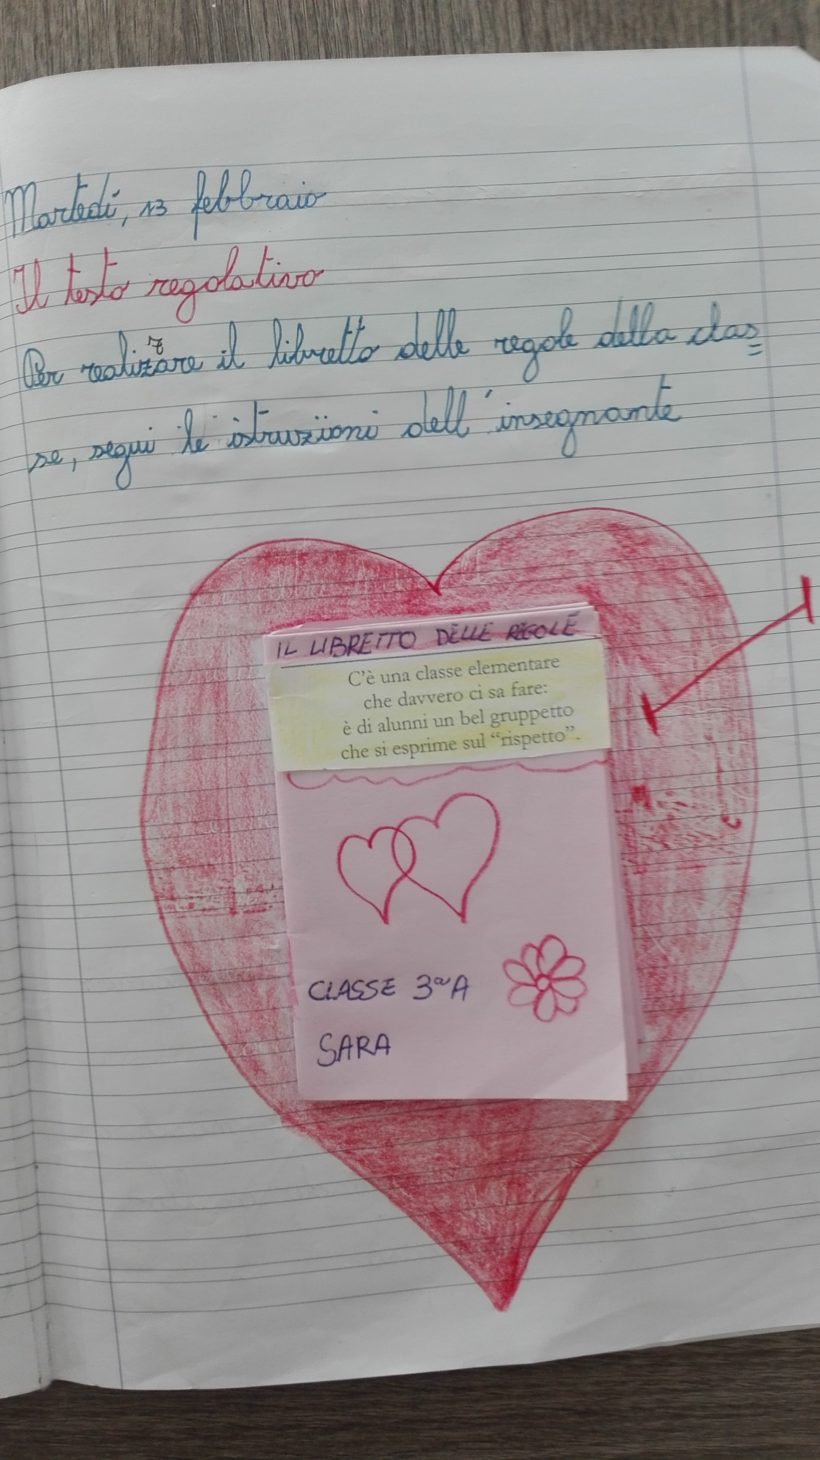 Martedì, 13 febbraio
Il testo regolativo
Per realizzare il libretto delle regole della clas
se, segui le istruzioni dell'insegnante
IL LIBRETTO DELLE REGOLE
C'è una classe elementare
che davvero ci sa fare:
è di alunni un bel gruppetto
che si esprime sul “rispetto”.
CLASSE 3ªA
SARA